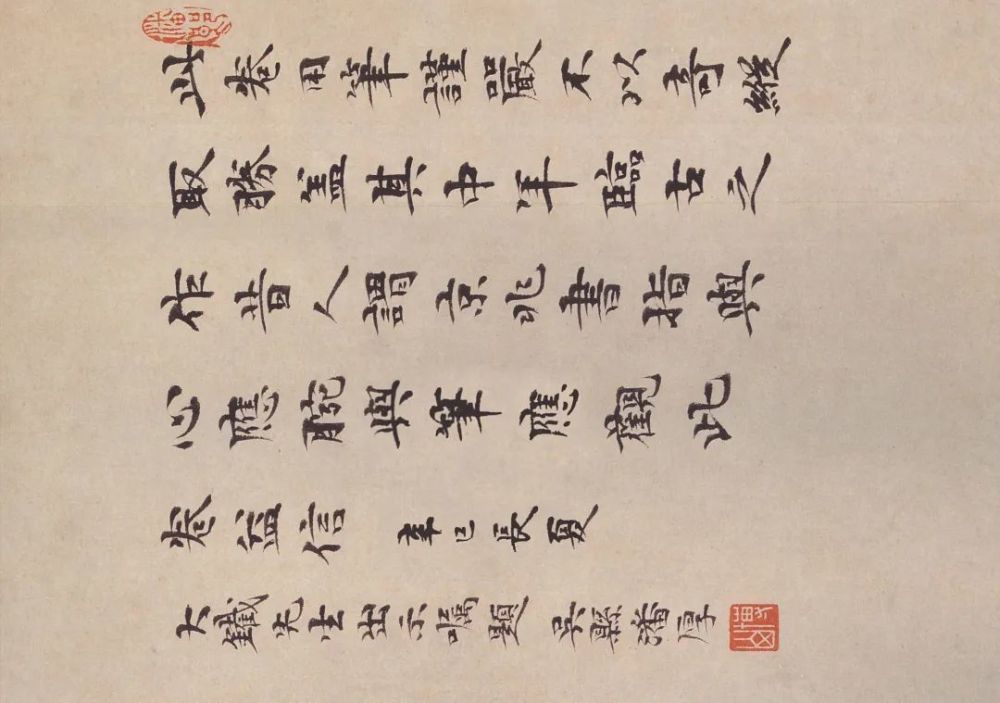 此卷用筆謹嚴不以奇縱
取勝盖其中年臨古之
作昔人謂京兆書指與
心應腕與筆應觀此
卷益信 辛巳長夏
大鐵先生出示囑題 吳縣潘厚